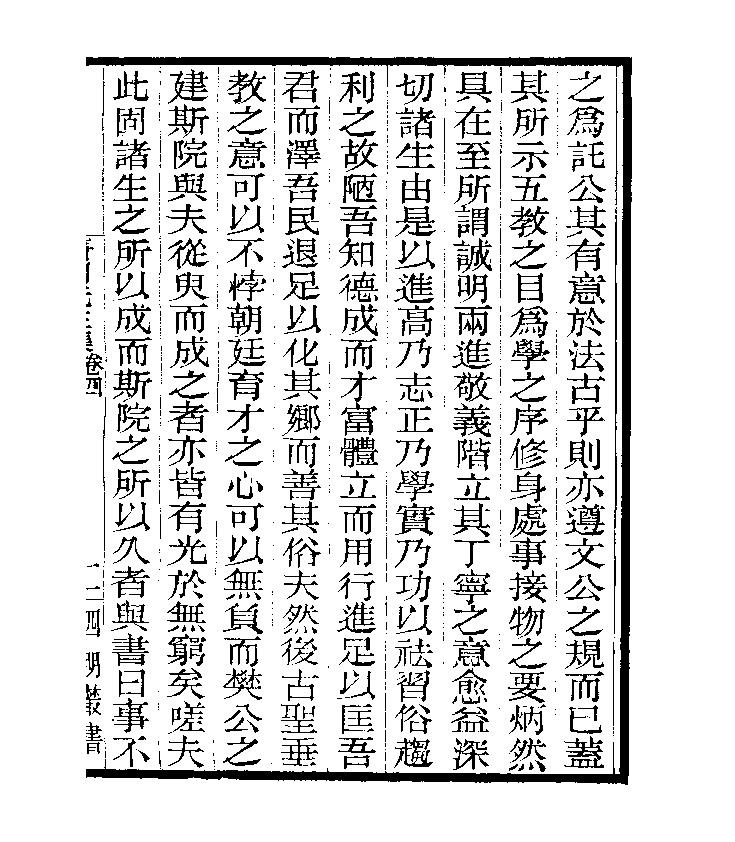 之爲託公其有意於法古乎則亦遵文公之規而已蓋
其所示五教之目爲學之序修身處事接物之要炳然
具在至所謂誠明兩進敬義階立其丁寧之意愈益深
切諸生由是以進高乃志正乃學實乃功以祛習俗趨
利之故陋吾知德成而才富體立而用行進足以匡吾
君而澤吾民退足以化其鄉而善其俗夫然後古聖垂
教之意可以不悖朝廷育才之心可以無負而樊公之
建斯院與夫從臾而成之者亦皆有光於無窮矣嗟夫
此固諸生之所以成而斯院之所以久者與書曰事不
集卷四
四明叢書